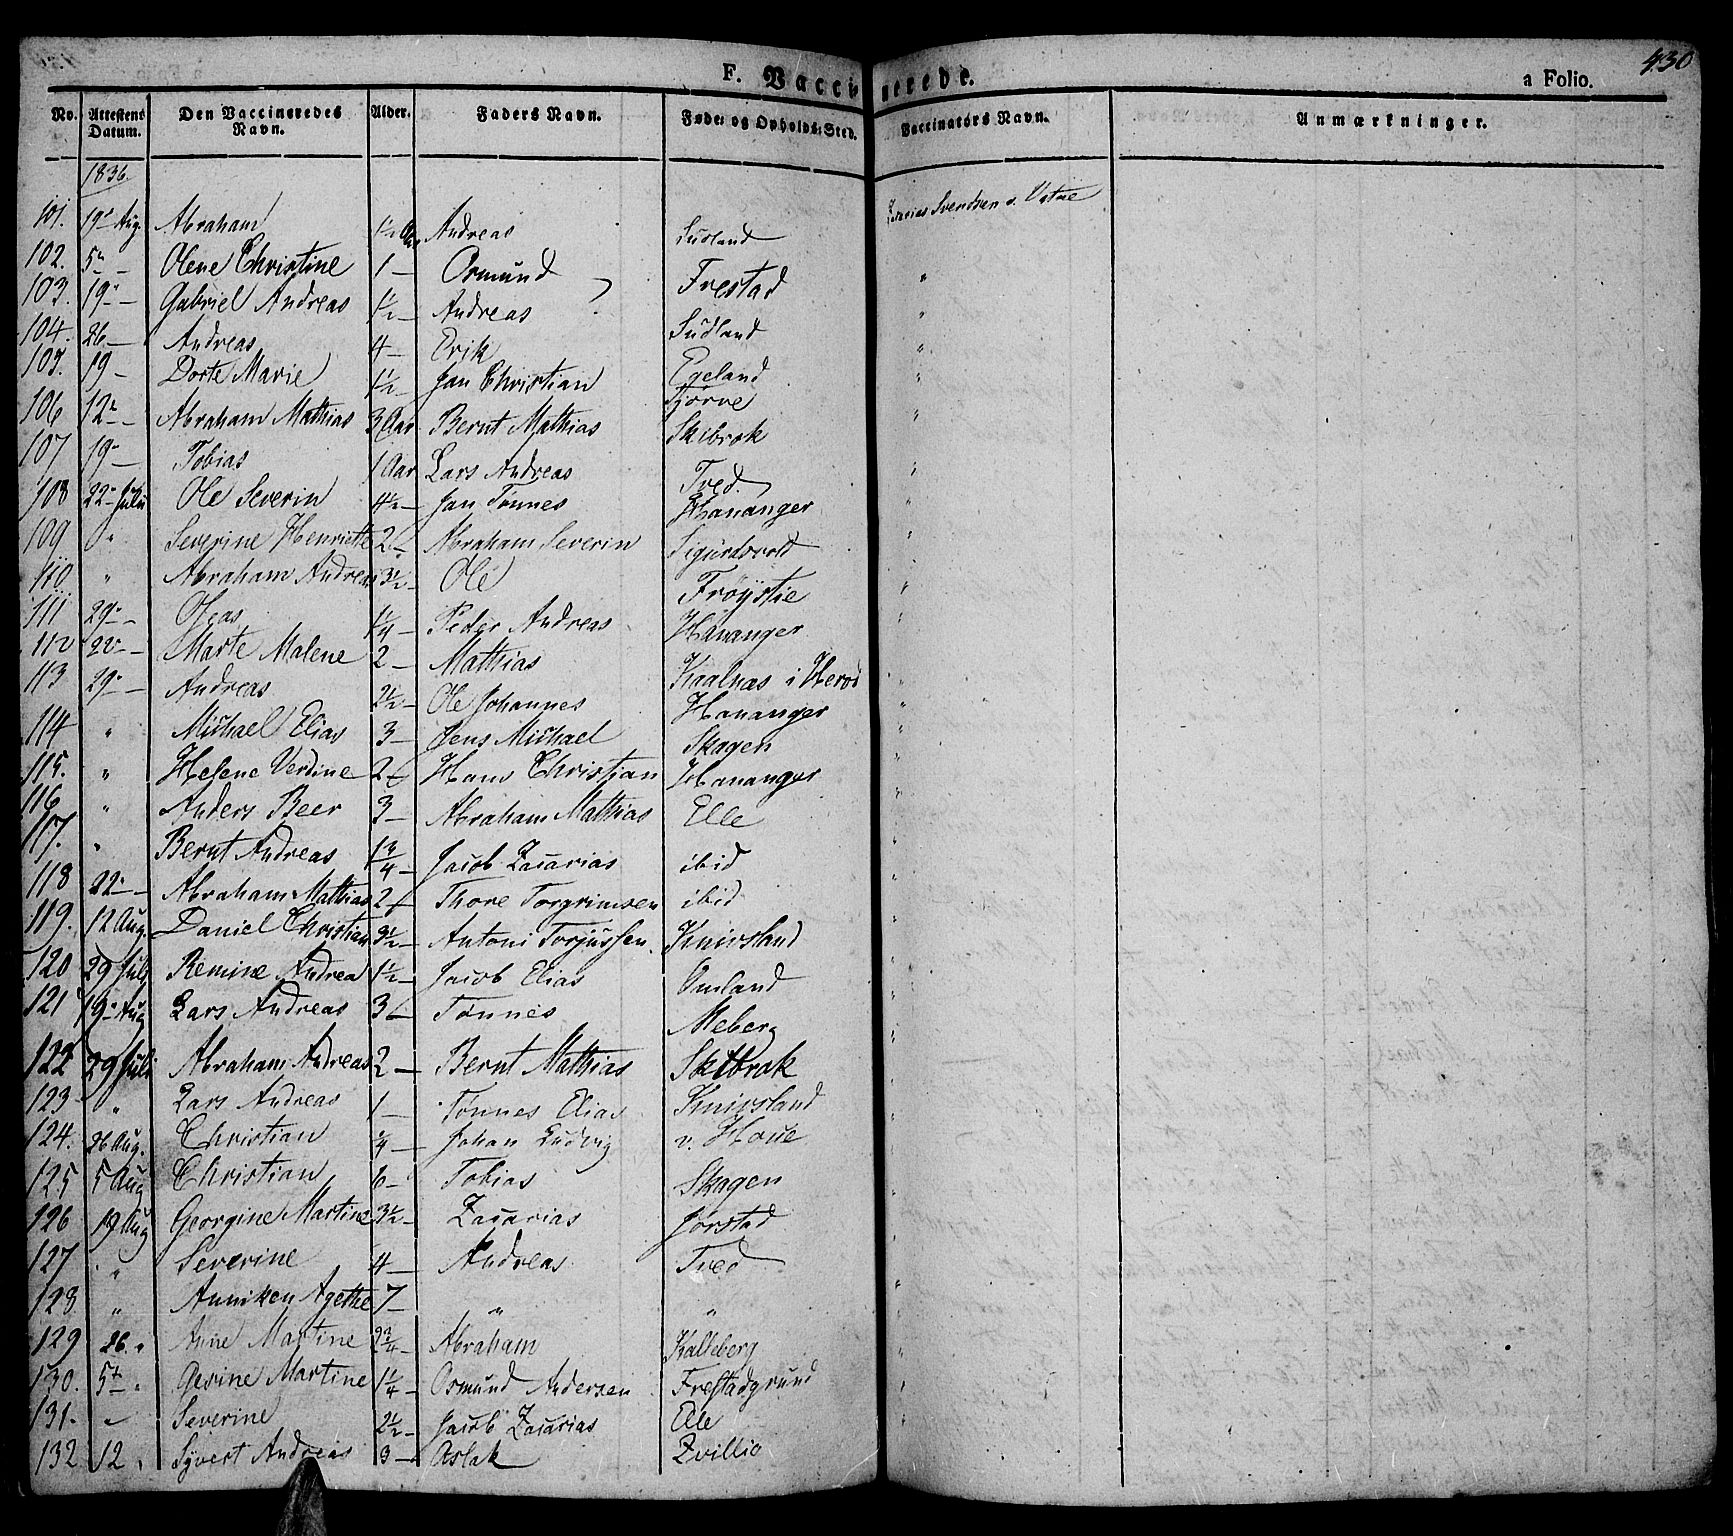 430
F. Vaccinerede.
a Folio.
No. Attestens Datum. Den Vaccineredes Navn. Alder. Faders Navn. Føde- og Opholds-Sted. Vaccinators Navn. Anmærkninger.
1836.
101. 19 Aug. Abraham 1½ Aar Andreas Sudland Svendsen v. Vatne
102. 5 — Olene Christine 1 — Osmund Frestad "
103. 19 — Gabriel Andreas 1½ — Andreas Sudland "
104. 26 — Andreas 4 — Erik Egeland "
105. 19 — Dorte Marie 1½ — Jan Christian Tjørve "
106 12 — Abraham Mathias 3 Aar Bernt Mathias Skibrok "
107 19 — Tobias 1 Aar Lars Andreas Tved "
108 22 Juli Ole Severin 4½ — Jan Tønnes Hananger "
109 " Severine Henriette 2 — Abraham Severin Sigurdsvold "
110 " Abraham Andreas 3½ — Ole Frøÿstie "
111 29 — Oleas 1¼ — Peder Andreas Hananger "
112 22 — Marte Malene 2 — Mathias Kaalnas i Herød "
113 29 — Andreas 2½ — Ole Johannes Hananger "
114 " Michael Elias 3 — Jens Michael Skagen "
115. " Helene Verdine 2 — Hans Christian Hananger "
116 " Anders Beer 3 — Abraham Mathias Elle "
117. " Bernt Andreas 1¾ — Jacob Zacarias ibid "
118 22 — Abraham Mathias 2 — Thore Torgrimsen ibid "
119. 12 Aug. Daniel Christian 3½ — Antoni Torjussen Knivsland "
120 29 Juli Remine Andrea 1½ — Jacob Elias Omland "
121 19 Aug Lars Andreas 3 — Tønnes Meberg "
122 29 Juli Abraham Andreas 2 — Bernt Mathias Skibrok "
123 " Lars Andreas 1 — Tønnes Elias Knivsland "
124. 26 Aug. Christian ¼ — Johan Ludvig v. Houe "
125 5 Aug Christian 6 — Tobias Skagen "
126 19 Aug Georgine Martine 3½ — Zacarias Jørstad "
127 " Severine 4 — Andreas Tved "
128 " Anniken Agethe 7 — " " "
129 26. " Anne Martine 2¾ — Abraham Kalleberg "
130. 5 — " Gesine Martine 1¼ — Osmund Andersen Frestadgrund "
131. " Severine 2½ — Jacob Zacarias Elle "
132 12 " Syvert Andreas 3 — Aslak